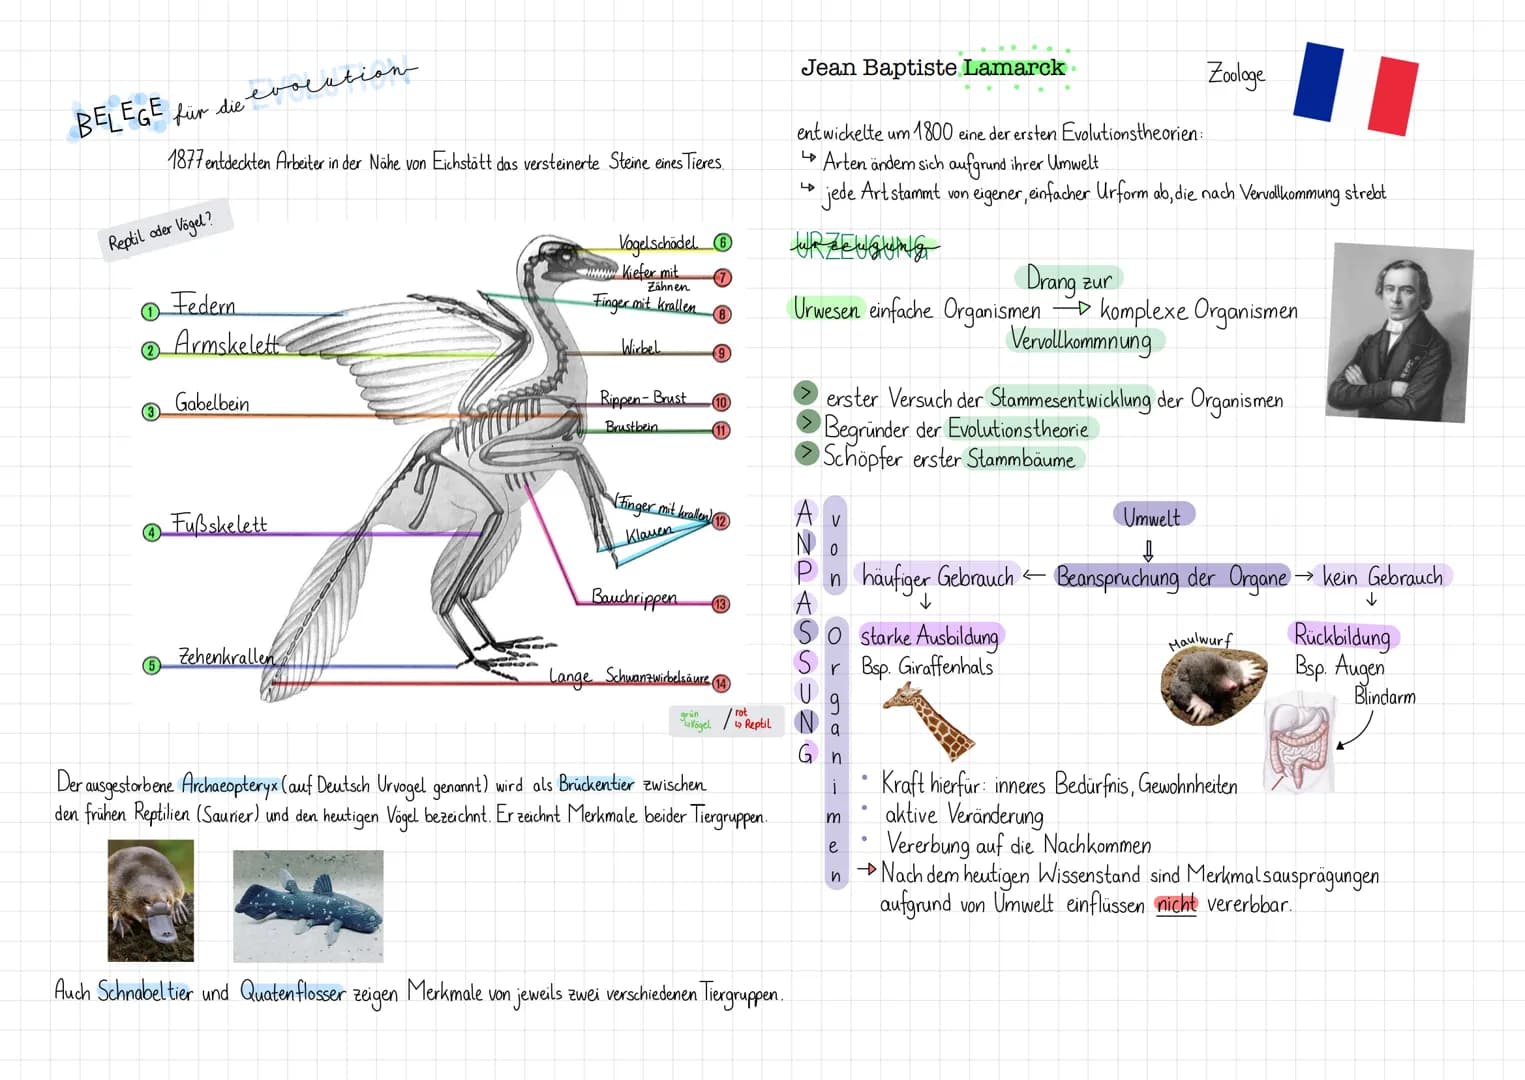 BELEGE für die evolution
EVOLUTION
1877 entdeckten Arbeiter in der Nähe von Eichstätt das versteinerte Steine eines Tieres.
Reptil oder Vögel?
1 Federn
2 Armskelett
3 Gabelbein
4 Fußskelett
5 Zehenkrallen
Vogelschädel 6
Kiefer mit Zähnen 7
Finger mit Krallen 8
Wirbel 9
Rippen-Brust 10
Brustbein 11
(Finger mit krallen) 12
Klauen
Bauchrippen 13
Lange Schwanzwirbelsäure 14
grün / rot
↳ Vögel ↳ Reptil
Der ausgestorbene Archaeopteryx (auf Deutsch Urvogel genannt) wird als Brückentier zwischen
den frühen Reptilien (Saurier) und den heutigen Vögel bezeichnt. Er zeichnt Merkmale beider Tiergruppen.
Auch Schnabeltier und Quatenflosser zeigen Merkmale von jeweils zwei verschiedenen Tiergruppen.
Jean Baptiste Lamarck
Zoologe
entwickelte um 1800 eine der ersten Evolutionstheorien:
↳ Arten ändern sich aufgrund ihrer Umwelt
↳ jede Art stammt von eigener, einfacher Urform ab, die nach Vervollkommung strebt
URZEUGUNG
urzeugung
Drang zur
Urwesen einfache Organismen → komplexe Organismen
Vervollkommnung
> erster Versuch der Stammesentwicklung der Organismen
> Begründer der Evolutionstheorie
> Schöpfer erster Stammbäume
ANPASSUNG
von Organimen
Umwelt
⇓
häufiger Gebrauch ← Beanspruchung der Organe → kein Gebrauch
↓ ↓
starke Ausbildung
Bsp. Giraffenhals
Maulwurf
Rückbildung
Bsp. Augen
Blindarm
• Kraft hierfür: inneres Bedürfnis, Gewohnheiten
• aktive Veränderung
• Vererbung auf die Nachkommen
→ Nach dem heutigen Wissenstand sind Merkmalsausprägungen
aufgrund von Umwelt einflüssen nicht vererbbar.